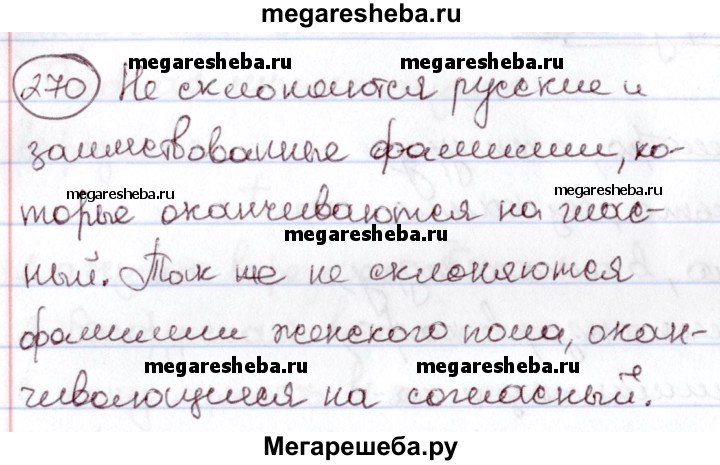 megaresheba.ru
megaresheba.ru megaresheba.ru
270 Не склоняются русские и
заимствованные фамилии, ко-
megaresheba.ru megaresheba.ru
торые оканчиваются на глас-
megaresheba.ru
ный. Так же не склоняются
фамилии женского пола, окан-
megaresheba.ru megaresheba.ru
чивающиеся на согласный.
Мегарешеба.ру